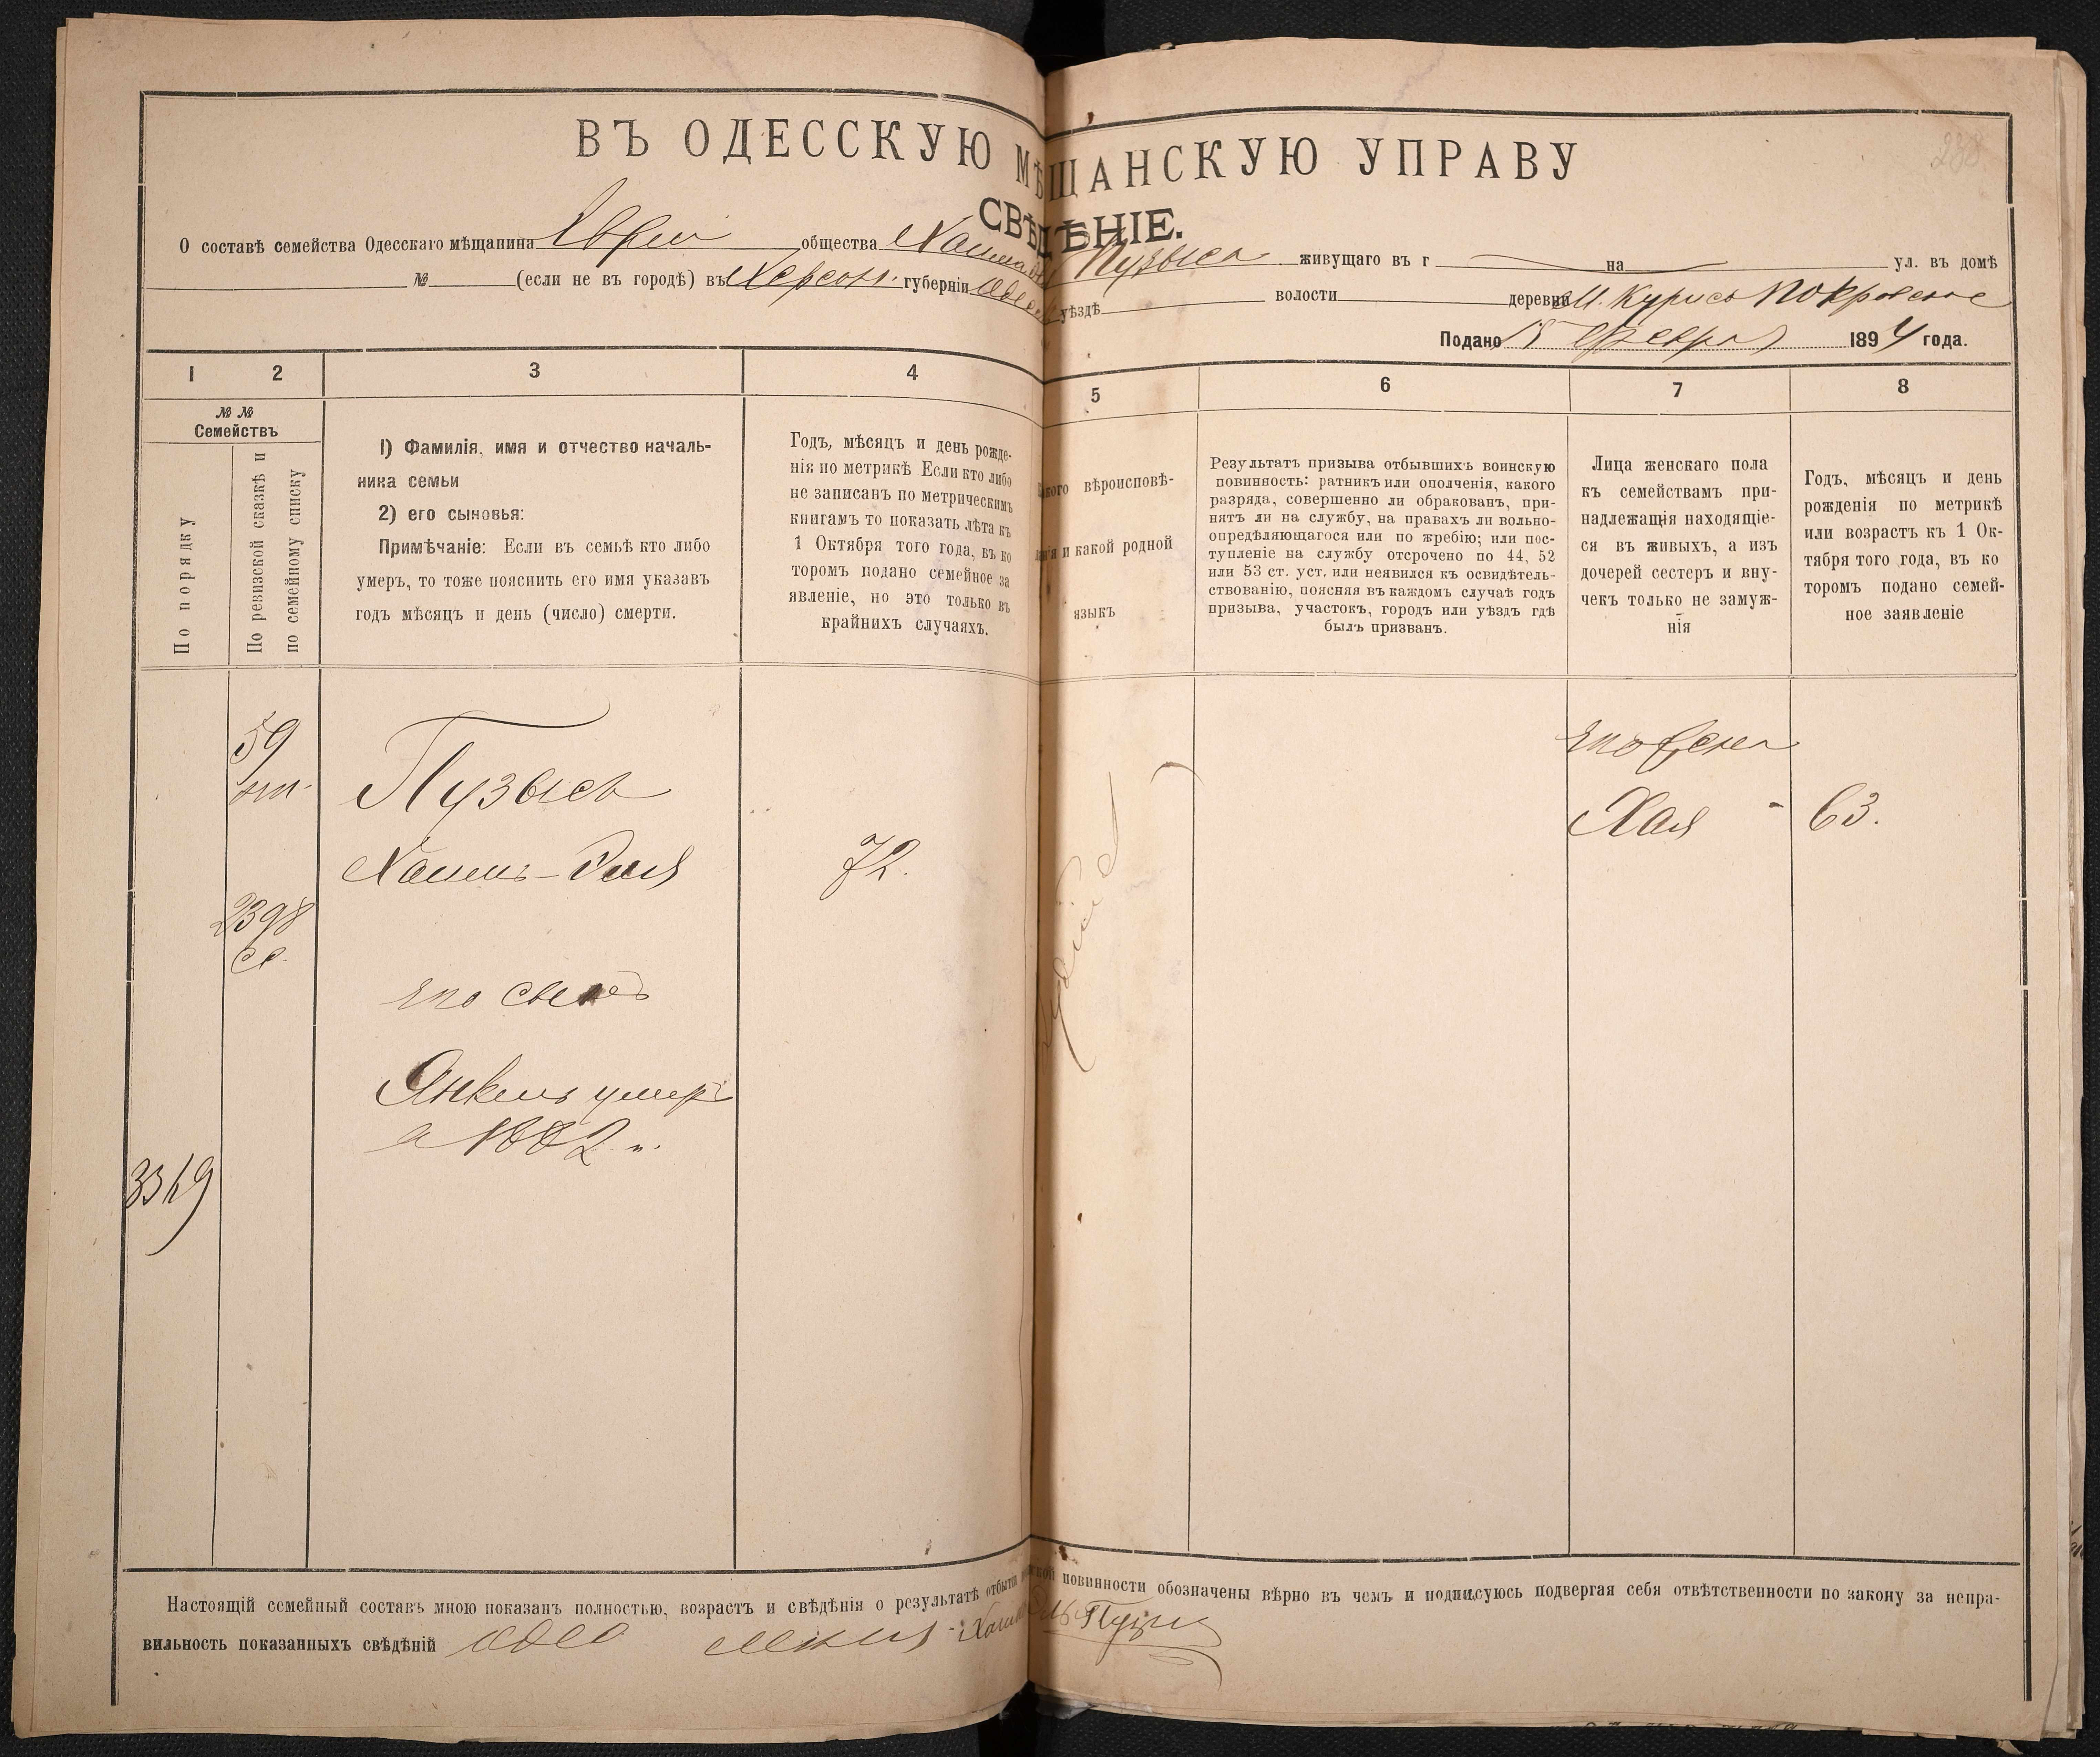 ВЪ ОДЕССКУЮ МѢЩАНСКУЮ УПРАВУ
СВѢДѢНІЕ.
О составѣ семейства Одесскаго мѣщанина Еврей общества Хаима Пузыса живущаго въ г на ул. въ домѣ
№ (если не въ городѣ) въ Херсон. губерніи Одесс уѣздѣ волости деревни М. Курисо Покровское
Подано 15 Февраля 1894 года.
1 2 3 4 5 6 7 8
№ №
Семействъ
По порядку
По ревизской сказкѣ и
по семейному списку
1) Фамилія, имя и отчество началь-
ника семьи
2) его сыновья:
Примѣчаніе: Если въ семьѣ кто либо
умеръ, то тоже пояснить его имя указавъ
годъ мѣсяцъ и день (число) смерти.
Годъ, мѣсяцъ и день рожде-
нія по метрикѣ Если кто либо
не записанъ по метрическимъ
книгамъ то показать лѣта къ
1 Октября того года, въ ко
торомъ подано семейное за
явленіе, но это только въ
крайнихъ случаяхъ.
вѣроисповѣ-
и какой родной
языкъ
Результатъ призыва отбывшихъ воинскую
повинность: ратникъ или ополченія, какого
разряда, совершенно ли обракованъ, при-
нятъ ли на службу, на правахъ ли вольно-
опредѣляющагося или по жребію; или пос-
тупленіе на службу отсрочено по 44, 52
или 53 ст. уст. или неявился къ освидѣтель-
ствованію, поясняя въ каждомъ случаѣ годъ
призыва, участокъ, городъ или уѣздъ гдѣ
былъ призванъ.
Лица женскаго пола
къ семействамъ при-
надлежащія находящіе-
ся въ живыхъ, а изъ
дочерей сестеръ и вну-
чекъ только не замуж-
нія
Годъ, мѣсяцъ и день
рожденія по метрикѣ
или возрастъ къ 1 Ок-
тября того года, въ ко
торомъ подано семей-
ное заявленіе
59
Пузысъ
Хаимъ-Эля
72.
2398
его сынъ
Янкель умеръ
в 1882 г.
3319
его жена
Хая - 63.
Настоящій семейный составъ мною показанъ полностью, возрастъ и свѣдѣнія о результатѣ отбытія повинности обозначены вѣрно въ чемъ и подписуюсь подвергая себя отвѣтственности по закону за непра-
вильность показанныхъ свѣдѣній